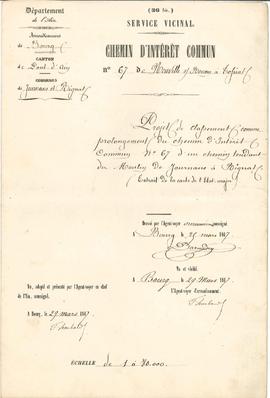 (26 bis.)
Département
de l'Ain.
Arrondissement
de Bourg
CANTON
de Pont d'Ain
COMMUNES
de Journans et Rignat
SERVICE VICINAL.
CHEMIN D'INTÉRÊT COMMUN
N° 67 de Neuville s/ Renom à Tossiat
Projet de classement comme
prolongement du chemin d'Intérêt
Commun N° 67 d'un chemin tendant
du Moulin de Journans à Rignat
Extrait de la carte de l'Etat-major
Dressé par l'Agent-voyer soussigné
A Bourg, le 25 mars 1867
Vu et vérifié.
A Bourg, le 29 Mars 1867
l'Agent-voyer d'arrondissement.
Vu, adopté et présenté par l'Agent-voyer en chef
de l'Ain, soussigné.
A Bourg, le 29 mars 1867
ÉCHELLE de 1 à 80.000.